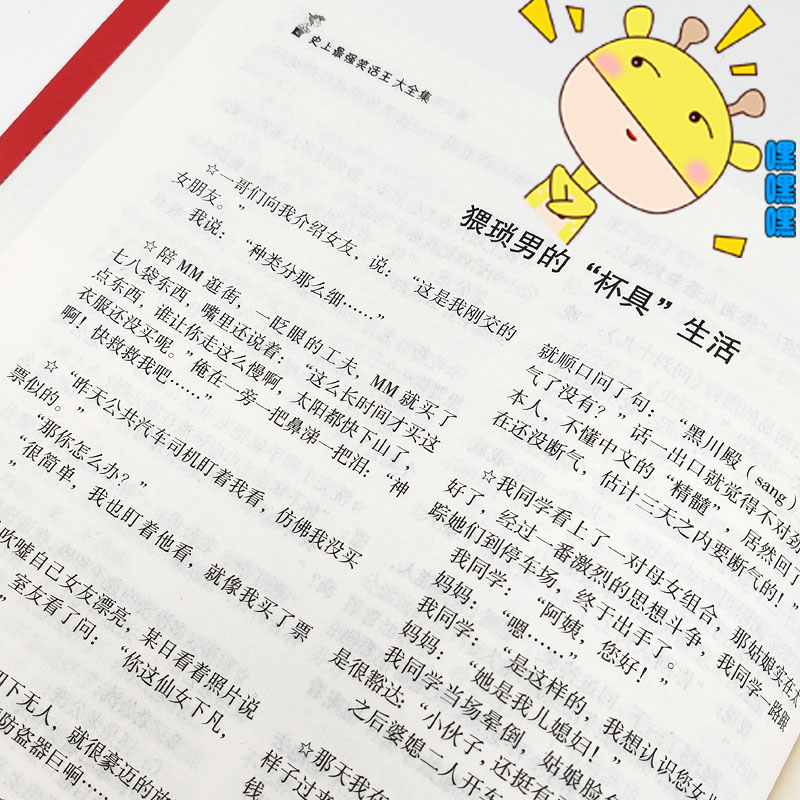 史上最强笑话王大全集
猥琐男的“杯具”生活
☆一哥们向我介绍女友，说：“这是我刚交的
女朋友。”
我说：“种类分那么细……”
☆陪 MM 逛街，一眨眼的工夫，MM 就买了
七八袋东西，嘴里还说着：“这么长时间才买这
点东西，谁让你走这么慢啊，太阳都快下山了，
衣服还没买呢。”俺在一旁一把鼻涕一把泪：“神
啊！快救救我吧……”
☆“昨天公共汽车司机盯着我看，仿佛我没买
票似的。”
“那你怎么办？”
“很简单，我也盯着他看，就像我买了票
”
吹嘘自己女友漂亮，某日看着照片说
室友看了问：“你这仙女下凡，
”
下无人，就很豪迈的放
防盗器巨响……
就顺口问了句：“黑川殿（sang）
气了没有？”话一出口就觉得不对劲
本人，不懂中文的“精髓”，居然回了
在还没断气，估计三天之内要断气的！”
☆我同学看上了一对母女组合，那姑娘实在太
好了，经过一番激烈的思想斗争，我同学一路跟
踪她们到停车场，终于出手了。
我同学：“阿姨，您好！”
妈妈：“嗯……”
我同学：“是这样的，我想认识您女儿
妈妈：“她是我儿媳妇！”
我同学当场晕倒，姑娘脸
是很豁达：“小伙子，还挺有
之后婆媳二人开车
☆那天我在
样子过来
钱
嘿嘿嘿